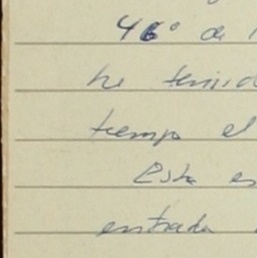 46° de
he tenid
tiempo el
Esta en
entrada